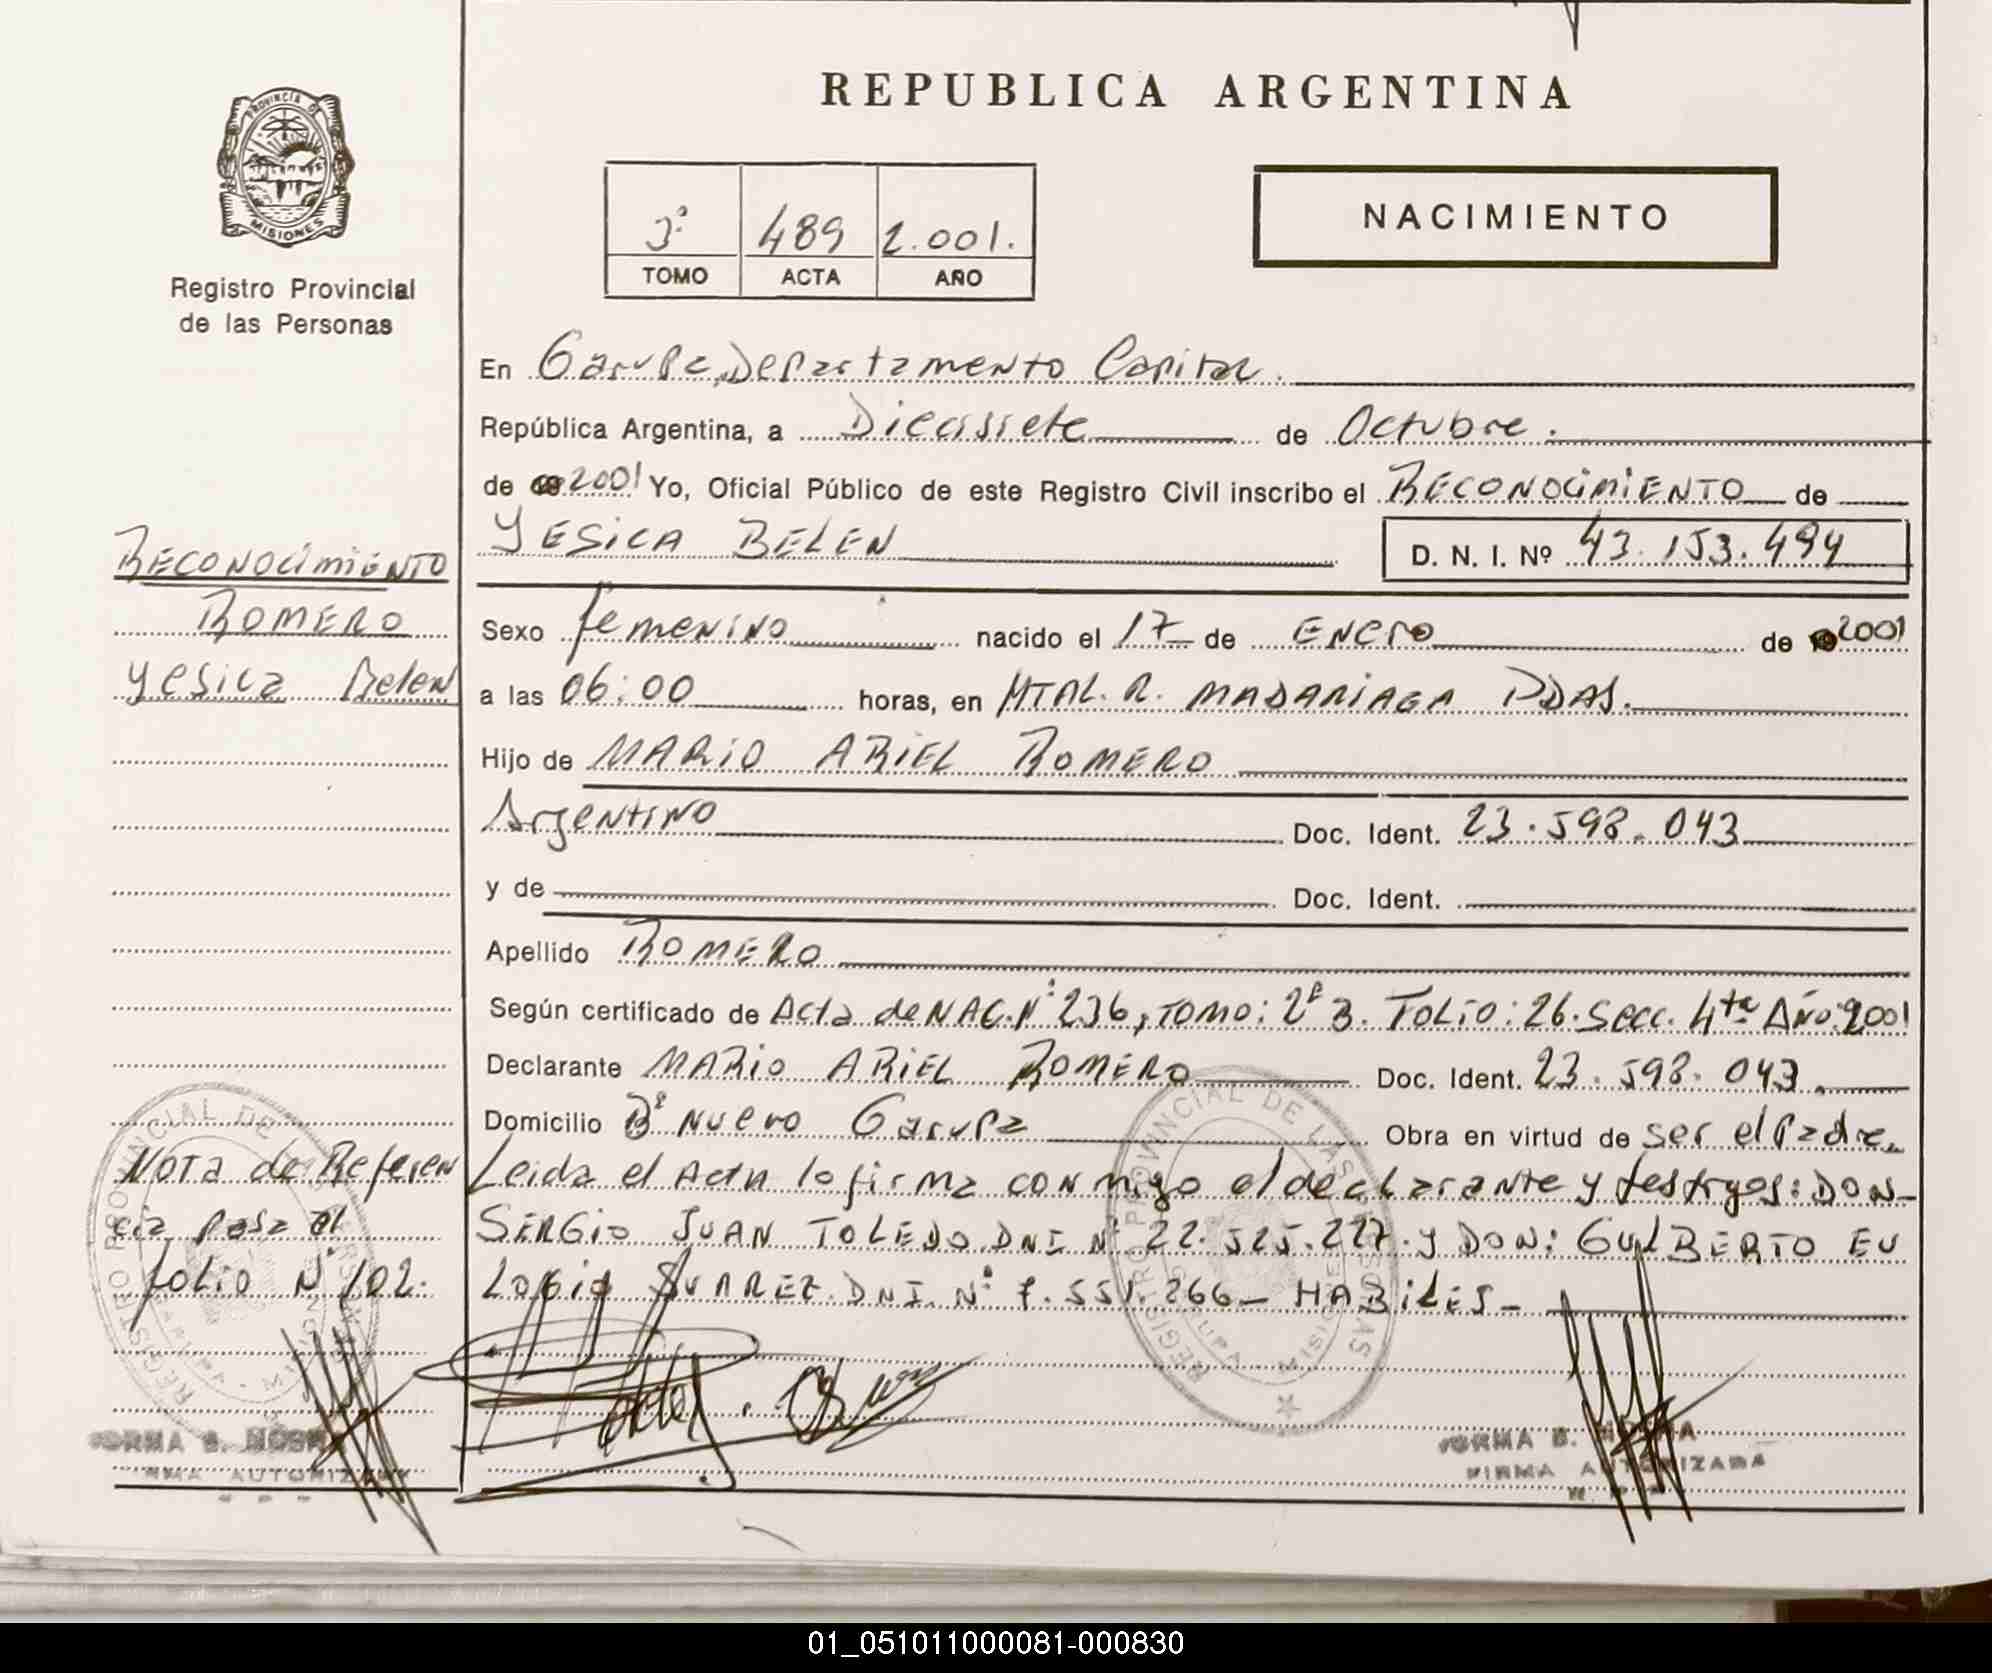 REPUBLICA ARGENTINA
PROVINCIA DE
MISIONES
Registro Provincial
de las Personas
3º 489 2.001.
TOMO ACTA AÑO
NACIMIENTO
En Garupa, Departamento Capital.
República Argentina, a Diecissiete de Octubre.
de 2001 Yo, Oficial Público de este Registro Civil inscribo el RECONOCIMIENTO de
YESICA BELEN D. N. I. Nº 43.153.494
RECONOCIMIENTO
ROMERO
Yesica Belen
Sexo femenino nacido el 17 de ENERO de 2001
a las 06:00 horas, en MTAL. R. MADARIAGA PDAS.
Hijo de MARIO ARIEL ROMERO
Argentino Doc. Ident. 23.598.043
y de Doc. Ident.
Apellido ROMERO
Según certificado de Acta de NAC. Nº 236, TOMO: 2º B. FOLIO: 26. Secc. 4ta Año: 2001
Declarante MARIO ARIEL ROMERO Doc. Ident. 23.598.043.
Domicilio Bº Nuevo Garupa Obra en virtud de ser el Padre.
Leida el Acta lo firma conmigo el declarante y testigos: DON
SERGIO JUAN TOLEDO DNI Nº 22.525.227. y DON: GUILBERTO EU
LOGIO SUAREZ. DNI. Nº 7.551.266 - HABILES -
Nota de Referen
cia pasa al
folio Nº 102.
REGISTRO PROVINCIAL DE LAS PERSONAS
GARUPA - MISIONES
REGISTRO PROVINCIAL DE LAS PERSONAS
GARUPA - MISIONES
NORMA B.
FIRMA AUTORIZADA
NORMA B.
FIRMA AUTORIZADA
01_051011000081-000830